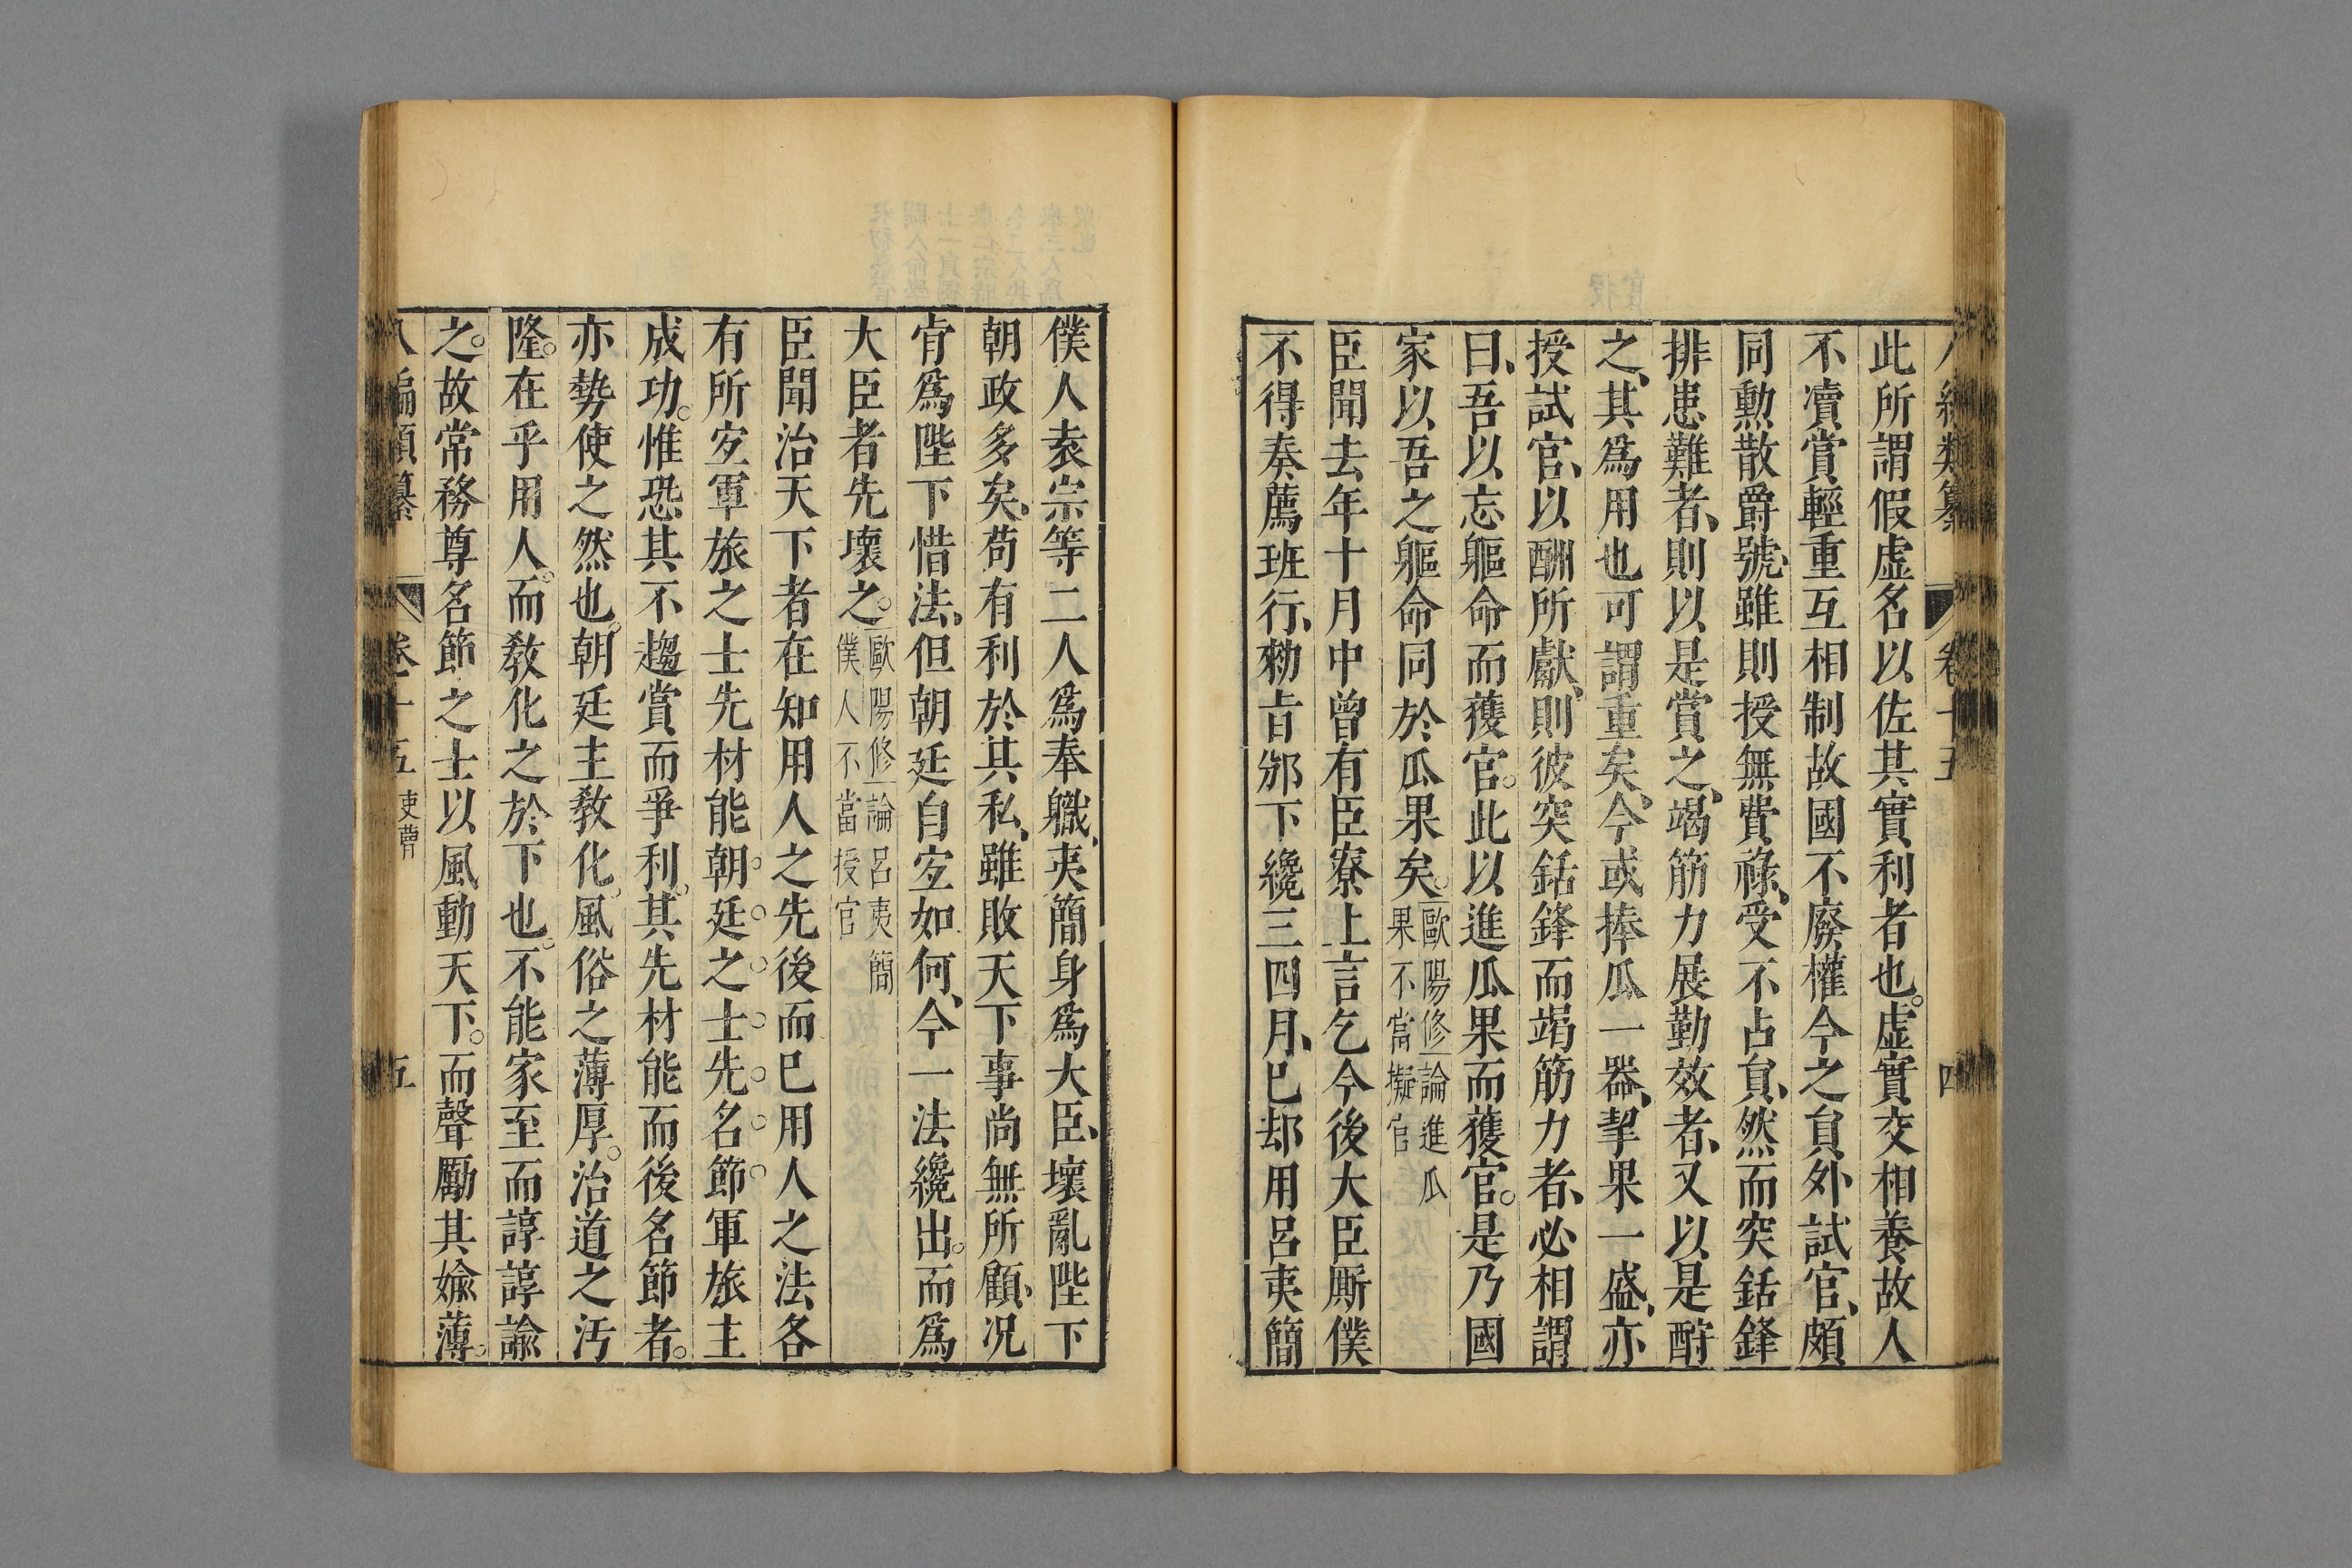 八編類纂 卷十五 四
此所謂假虛名以佐其實利者也。虛實交相養故人
不瀆賞輕重互相制故國不廢權今之貟外試官、頗
同勲散爵號、雖則授無費祿、受不占貟、然而突銛鋒
排患難者、則以是賞之、竭筋力展勤效者、又以是酧
之、其爲用也可謂重矣、今或捧瓜一器、挈果一盛、亦
授試官、以酬所獻、則彼突銛鋒而竭筋力者、必相謂
曰、吾以忘軀命而獲官。此以進瓜果而獲官。是乃國
家以吾之軀命同於瓜果矣。歐陽修論進瓜
果不當擬官
臣聞去年十月中曾有臣寮上言乞今後大臣厮僕
不得奏薦班行、勑旨頒下纔三四月、已却用呂夷簡
僕人袁宗等二人爲奉職、夷簡身爲大臣、壞亂陛下
朝政多矣、苟有利於其私、雖敗天下事尚無所顧、况
肯爲陛下惜法、但朝廷自㝎如何、今一法纔出。而爲
大臣者先壞之。歐陽修論呂夷簡
僕人不當授官
臣聞治天下者在知用人之先後而已用人之法各
有所㝎軍旅之士先材能朝廷之士先名節軍旅主
成功。惟恐其不趨賞而爭利。其先材能而後名節者。
亦勢使之然也。朝廷主敎化。風俗之薄厚。治道之汚
隆。在乎用人。而敎化之於下也。不能家至而諄諄諭
之。故常務尊名節之士以風動天下。而聲勵其媮薄。
八編類纂 卷十五 吏曹 五